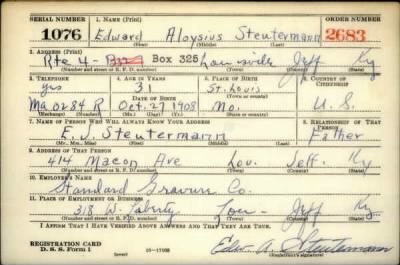 SERIAL NUMBER 1. NAME (Print) ORDER NUMBER
1076 Edward Aloysius Steutermann 2683
(First) (Middle) (Last)
2. ADDRESS (Print)
Rte 4- Box 325 Louisville Jeff Ky
(Number and street or R. F. D. number) (Town) (County) (State)
3. TELEPHONE 4. AGE IN YEARS 5. PLACE OF BIRTH 6. COUNTRY OF CITIZENSHIP
yes 31 St. Louis
DATE OF BIRTH
Ma 0284 R Oct. 27 1908 Mo. U. S.
(Exchange) (Number) (Mo.) (Day) (Yr.) (State or country)
7. NAME OF PERSON WHO WILL ALWAYS KNOW YOUR ADDRESS 8. RELATIONSHIP OF THAT PERSON
E. J. Steutermann Father
(Mr., Mrs., Miss) (First) (Middle) (Last)
9. ADDRESS OF THAT PERSON
414 Macon Ave Lou. Jeff. Ky
(Number and street or R. F. D. number) (Town) (County) (State)
10. EMPLOYER'S NAME
Standard Gravure Co.
11. PLACE OF EMPLOYMENT OR BUSINESS
318 W. Liberty Lou- Jeff Ky
(Number and street or R. F. D. number) (Town) (County) (State)
I AFFIRM THAT I HAVE VERIFIED ABOVE ANSWERS AND THAT THEY ARE TRUE.
REGISTRATION CARD
D. S. S. Form 1 16-17105 Edw. A. Steutermann
(Registrant's signature)